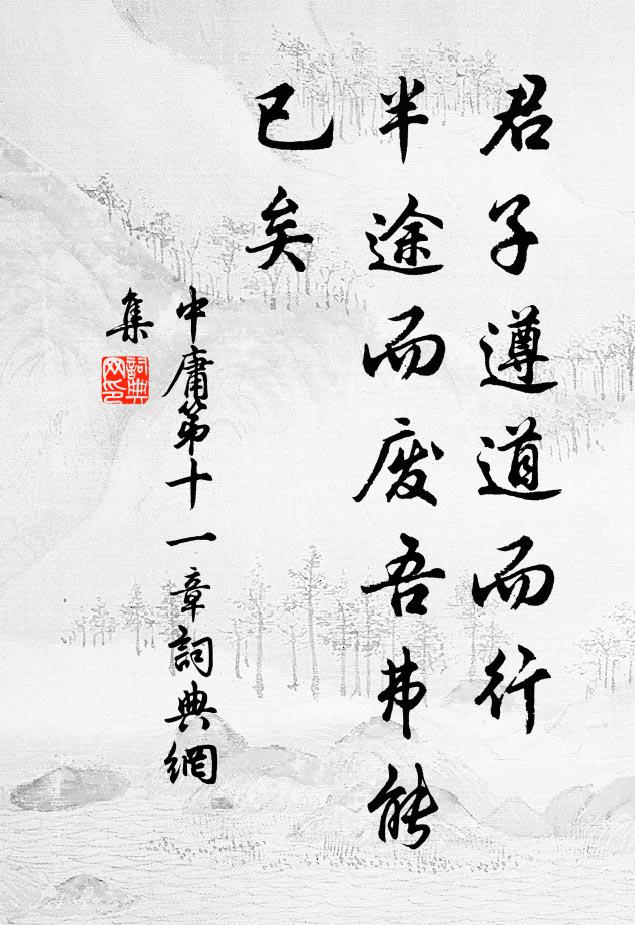 君子遵道而行
半途而废吾弗能
已矣
中庸第十一章詞典網
集
詞典
网印